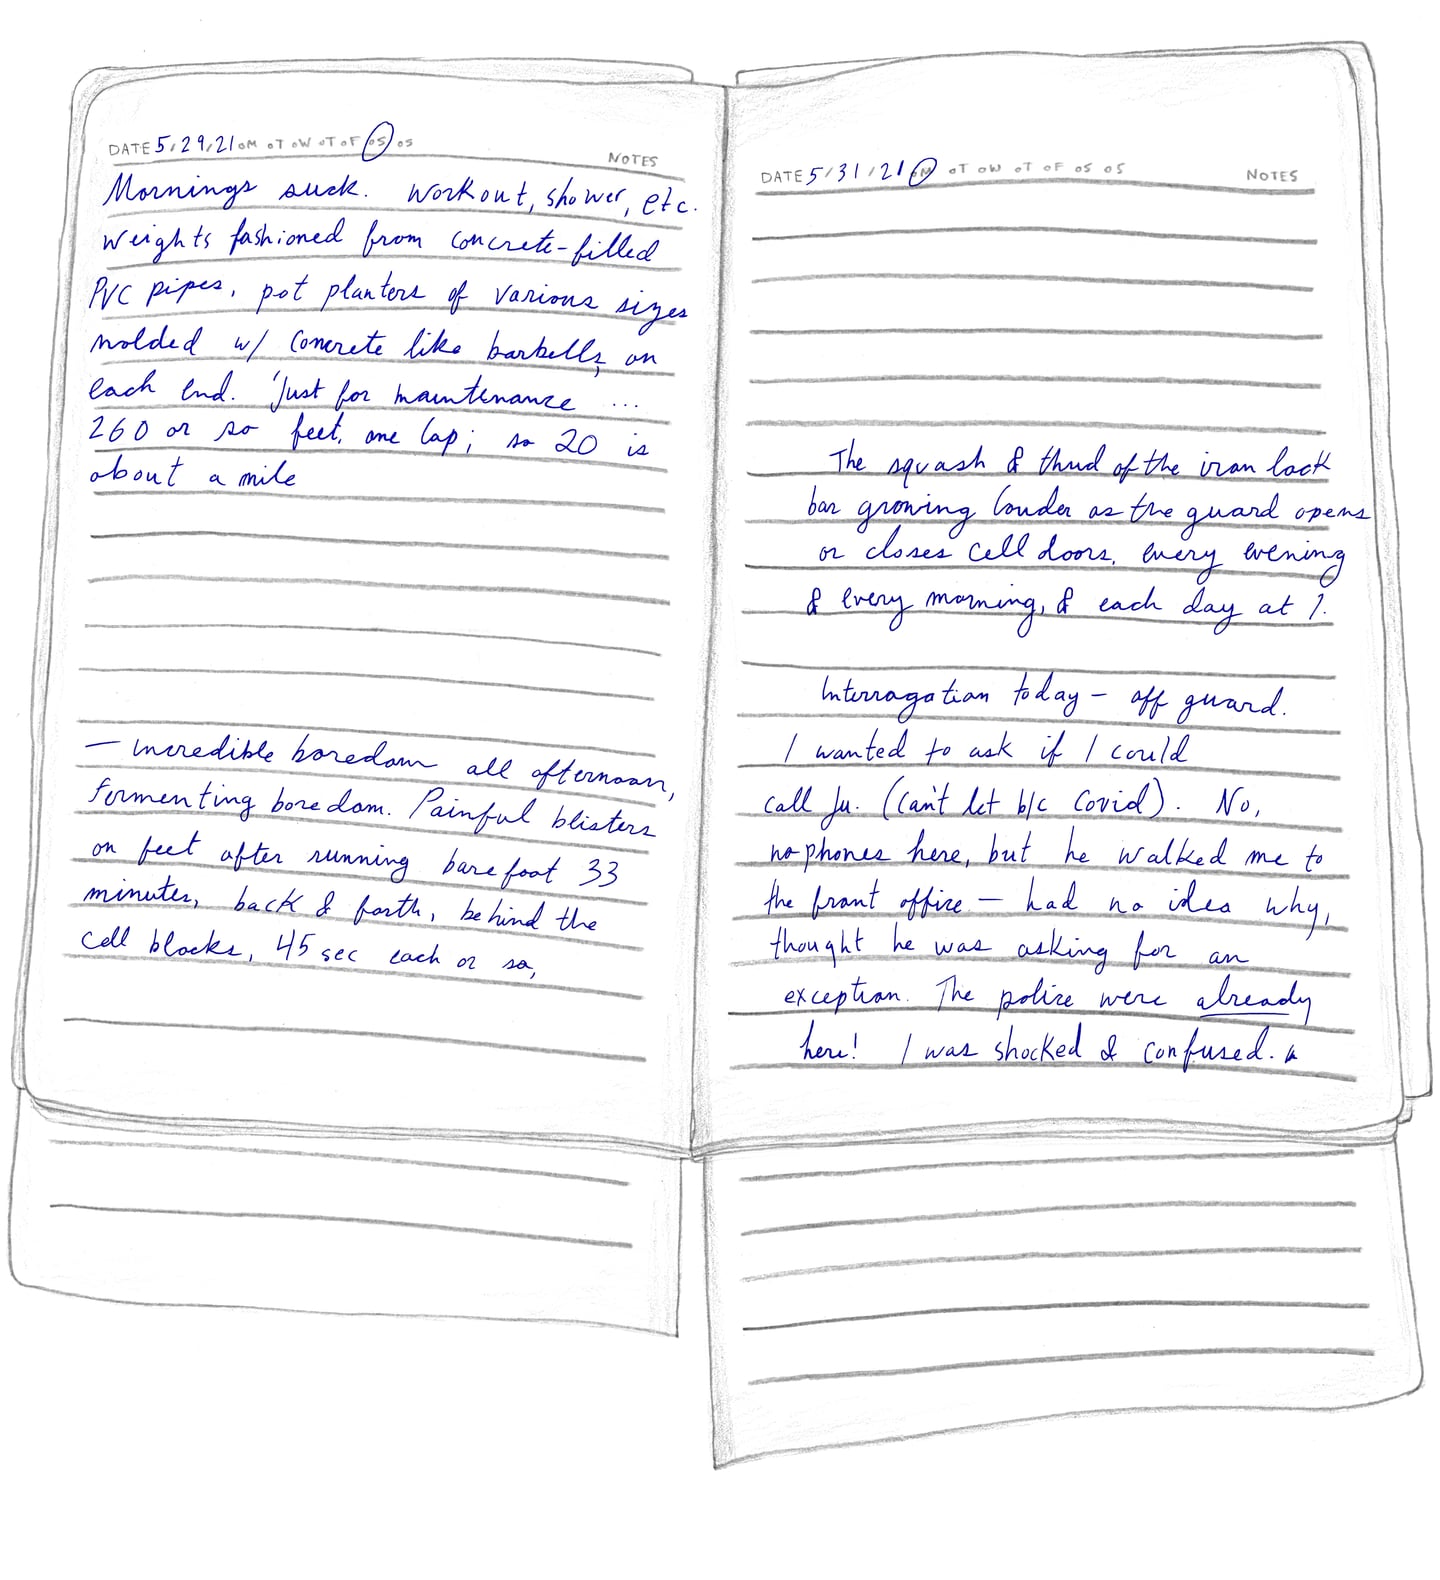 DATE 5/29/21 oM oT oW oT oF oS oS
NOTES
Mornings suck. Workout, shower, etc.
Weights fashioned from concrete-filled
PVC pipes, pot planters of various sizes
molded w/ concrete like barbells, on
each end. Just for maintenance ...
260 or so feet, one lap; so 20 is
about a mile
— incredible boredom all afternoon,
fermenting boredom. Painful blisters
on feet after running barefoot 33
minutes, back & forth, behind the
cell blocks, 45 sec each or so,
DATE 5/31/21 oM oT oW oT oF oS oS
NOTES
The squash & thud of the iron lock
bar growing louder as the guard opens
or closes cell doors, every evening
& every morning, & each day at 1.
Interrogation today – off guard.
I wanted to ask if I could
call Ju. (can't let b/c Covid). No,
no phones here, but he walked me to
the front office — had no idea why,
thought he was asking for an
exception. The police were already
here! I was shocked & confused.